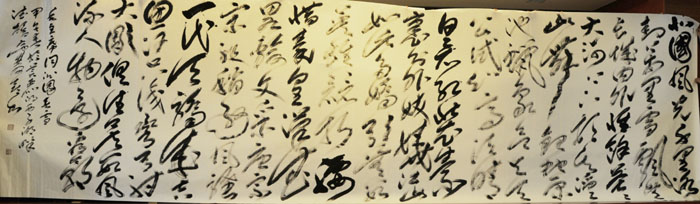 北國風光千里冰
封萬里雪飄望
長城內外惟餘莽莽
大河上下頓失滔滔
山舞銀蛇原
馳蠟象欲與天
公試比高須晴
日看紅裝素
裹分外妖嬈江山
如此多嬌引無數
英雄競折腰
惜秦皇漢武
略輸文采唐宗
宋祖稍遜風騷
一代天驕成吉
思汗只識彎弓射
大雕俱往矣數風
流人物還看今朝
毛主席詞沁園春雪
甲午春